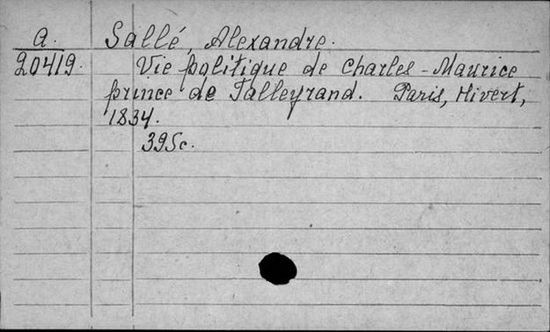 a. Sallé, Alexandre.
20419. Vie politique de Charles-Maurice
prince de Talleyrand. Paris, Hivert,
1834.
395c.